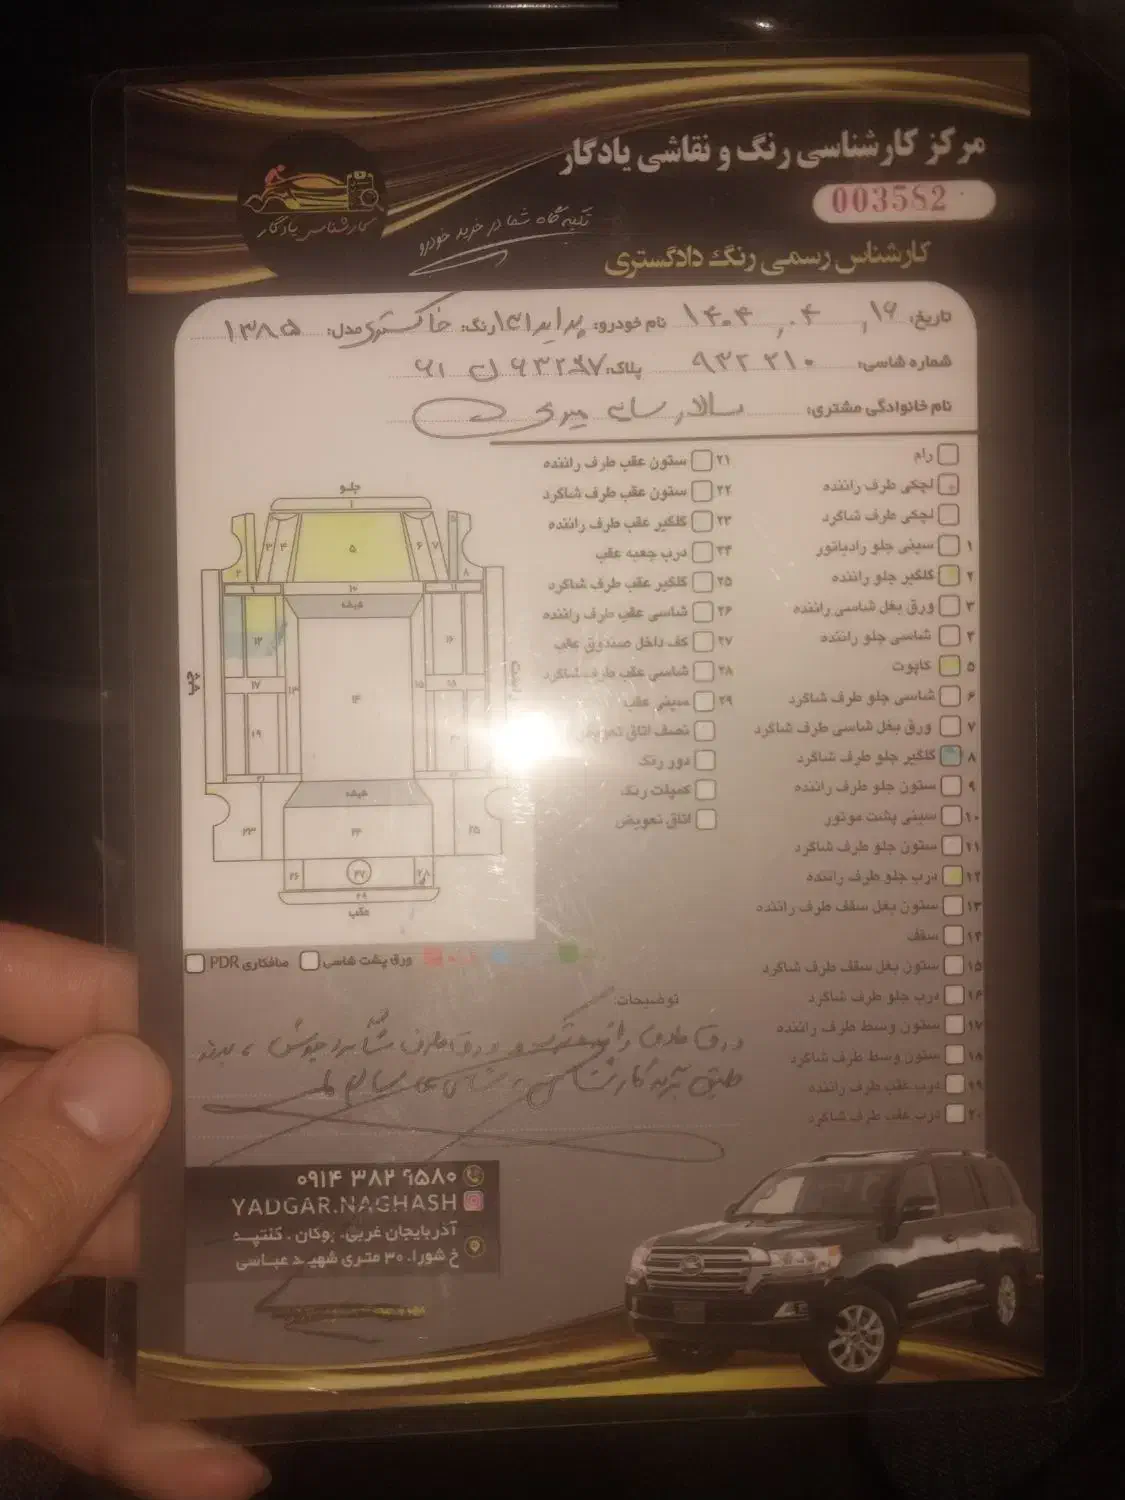 مرکز کارشناسی رنگ و نقاشی یادگار
003582
کارشناسی یادگار
تکیه گاه شما در خرید خودرو
کارشناس رسمی رنگ دادگستری
تاریخ: ۱۴۰۴, ۰۴, ۱۶ نام خودرو: پراید رنگ: خاکستری مدل: ۱۳۸۵
شماره شاسی: ۹۳۲۲۱۰ پلاک:
نام خانوادگی مشتری: سالار
رام
لچکی طرف راننده
لچکی طرف شاگرد
۱ سینی جلو رادیاتور
۲ گلگیر جلو راننده
۳ ورق بغل شاسی راننده
۴ شاسی جلو راننده
۵ کاپوت
۶ شاسی جلو طرف شاگرد
۷ ورق بغل شاسی طرف شاگرد
۸ گلگیر جلو طرف شاگرد
۹ ستون جلو طرف راننده
۱۰ سینی پشت موتور
۱۱ ستون جلو طرف شاگرد
۱۲ درب جلو طرف راننده
۱۳ ستون بغل سقف طرف راننده
۱۴ سقف
۱۵ ستون بغل سقف طرف شاگرد
۱۶ درب جلو طرف شاگرد
۱۷ ستون وسط طرف راننده
۱۸ ستون وسط طرف شاگرد
۱۹ درب عقب طرف راننده
۲۰ درب عقب طرف شاگرد
۲۱ ستون عقب طرف راننده
۲۲ ستون عقب طرف شاگرد
۲۳ گلگیر عقب طرف راننده
۲۴ درب جعبه عقب
۲۵ گلگیر عقب طرف شاگرد
۲۶ شاسی عقب طرف راننده
۲۷ کف داخل صندوق عقب
۲۸ شاسی عقب طرف شاگرد
۲۹ سینی عقب
نصف اتاق تعویض
دور رنگ
کمپلت رنگ
اتاق تعویض
جلو
۱
۲ ۳ ۴ ۵ ۶ ۷ ۸
۹ ۱۰ ۱۱
شیشه
۱۲ ۱۶
۱۷ ۱۳ ۱۴ ۱۵ ۱۸
۱۹ ۲۰
۲۱
شیشه
۲۳ ۲۴ ۲۵
۲۶ ۲۷ ۲۸
۲۹
عقب
ورق پشت شاسی صافکاری PDR
توضیحات:
۰۹۱۴ ۳۸۲ ۹۵۸۰
YADGAR.NAGHASH
آذربایجان غربی. بوکان. کنتپه
خ شورا. ۳۰ متری شهید عباسی